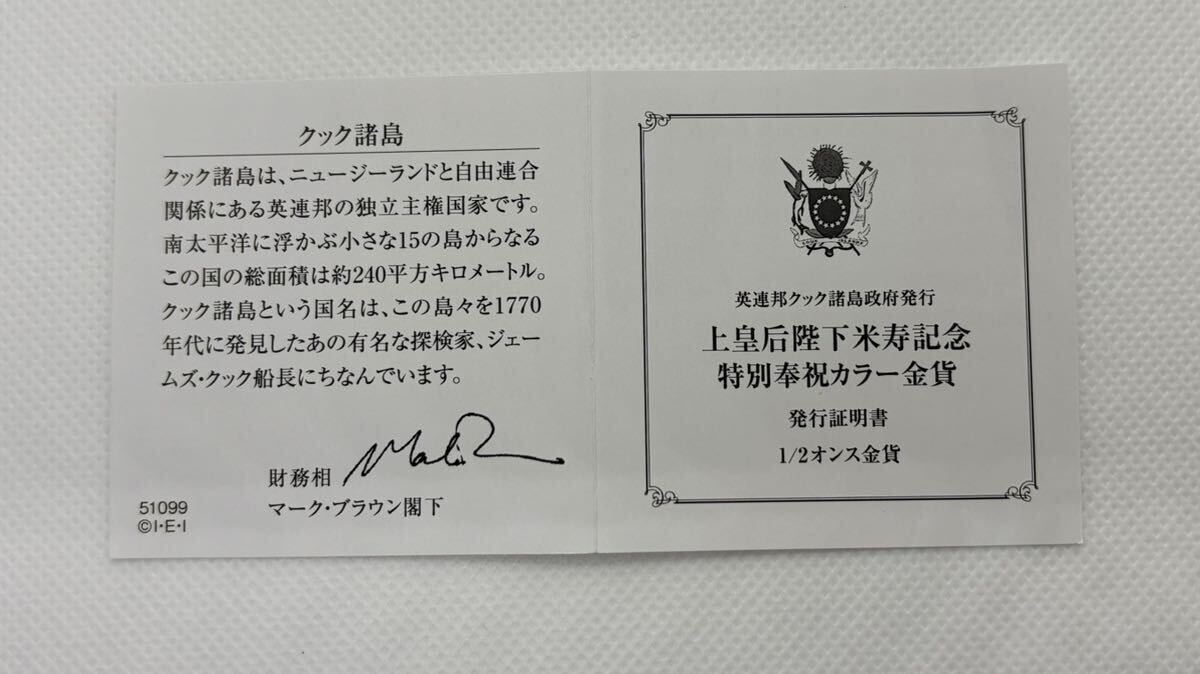 クック諸島
クック諸島は、ニュージーランドと自由連合
関係にある英連邦の独立主権国家です。
南太平洋に浮かぶ小さな15の島からなる
この国の総面積は約240平方キロメートル。
クック諸島という国名は、この島々を1770
年代に発見したあの有名な探検家、ジェー
ムズ・クック船長にちなんでいます。
財務相
マーク・ブラウン閣下
51099
©I・E・I
英連邦クック諸島政府発行
上皇后陛下米寿記念
特別奉祝カラー金貨
発行証明書
1/2オンス金貨